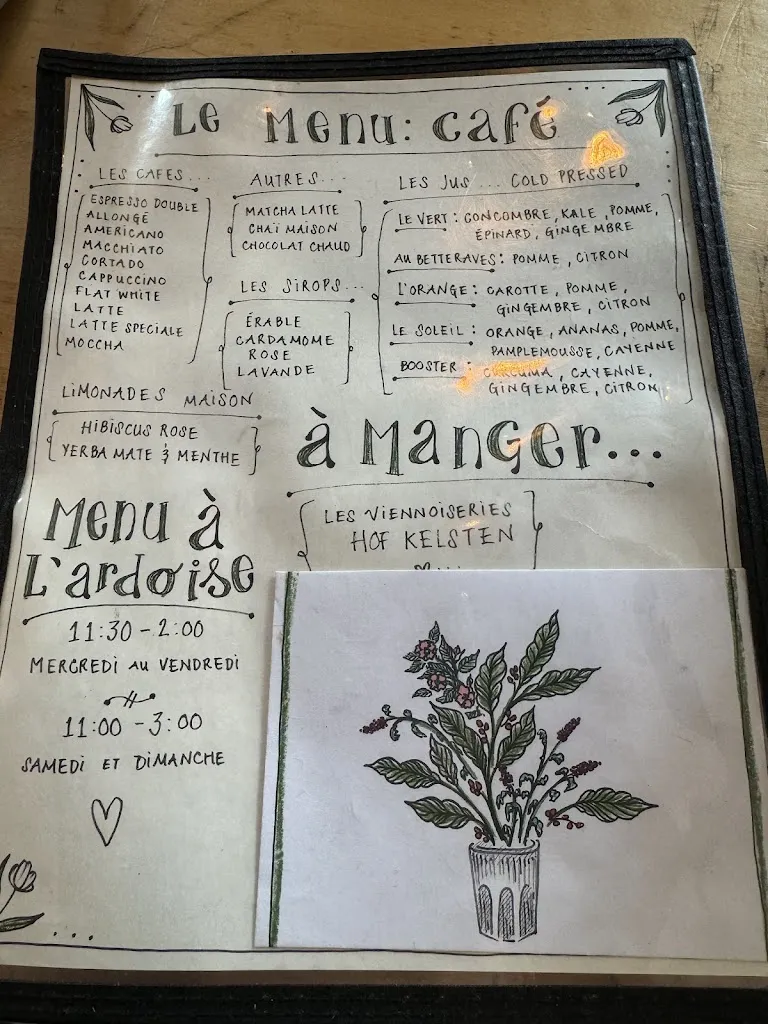 Le Menu: café
LES CAFES...
ESPRESSO DOUBLE
ALLONGÉ
AMERICANO
MACCHIATO
CORTADO
CAPPUCCINO
FLAT WHITE
LATTE
LATTE SPECIALE
MOCCHA
AUTRES...
MATCHA LATTE
CHAÏ MAISON
CHOCOLAT CHAUD
LES SIROPS...
ÉRABLE
CARDAMOME
ROSE
LAVANDE
LES JUS ... COLD PRESSED
LE VERT : CONCOMBRE, KALE, POMME,
ÉPINARD, GINGEMBRE
AU BETTERAVES : POMME, CITRON
L'ORANGE : CAROTTE, POMME,
GINGEMBRE, CITRON
LE SOLEIL : ORANGE, ANANAS, POMME,
PAMPLEMOUSSE, CAYENNE
BOOSTER : CURCUMA, CAYENNE,
GINGEMBRE, CITRON
LIMONADES MAISON
HIBISCUS ROSE
YERBA MATE & MENTHE
à Manger...
LES VIENNOISERIES
HOF KELSTEN
Menu à
L'ardoise
11:30 - 2:00
MERCREDI AU VENDREDI
11:00 - 3:00
SAMEDI ET DIMANCHE